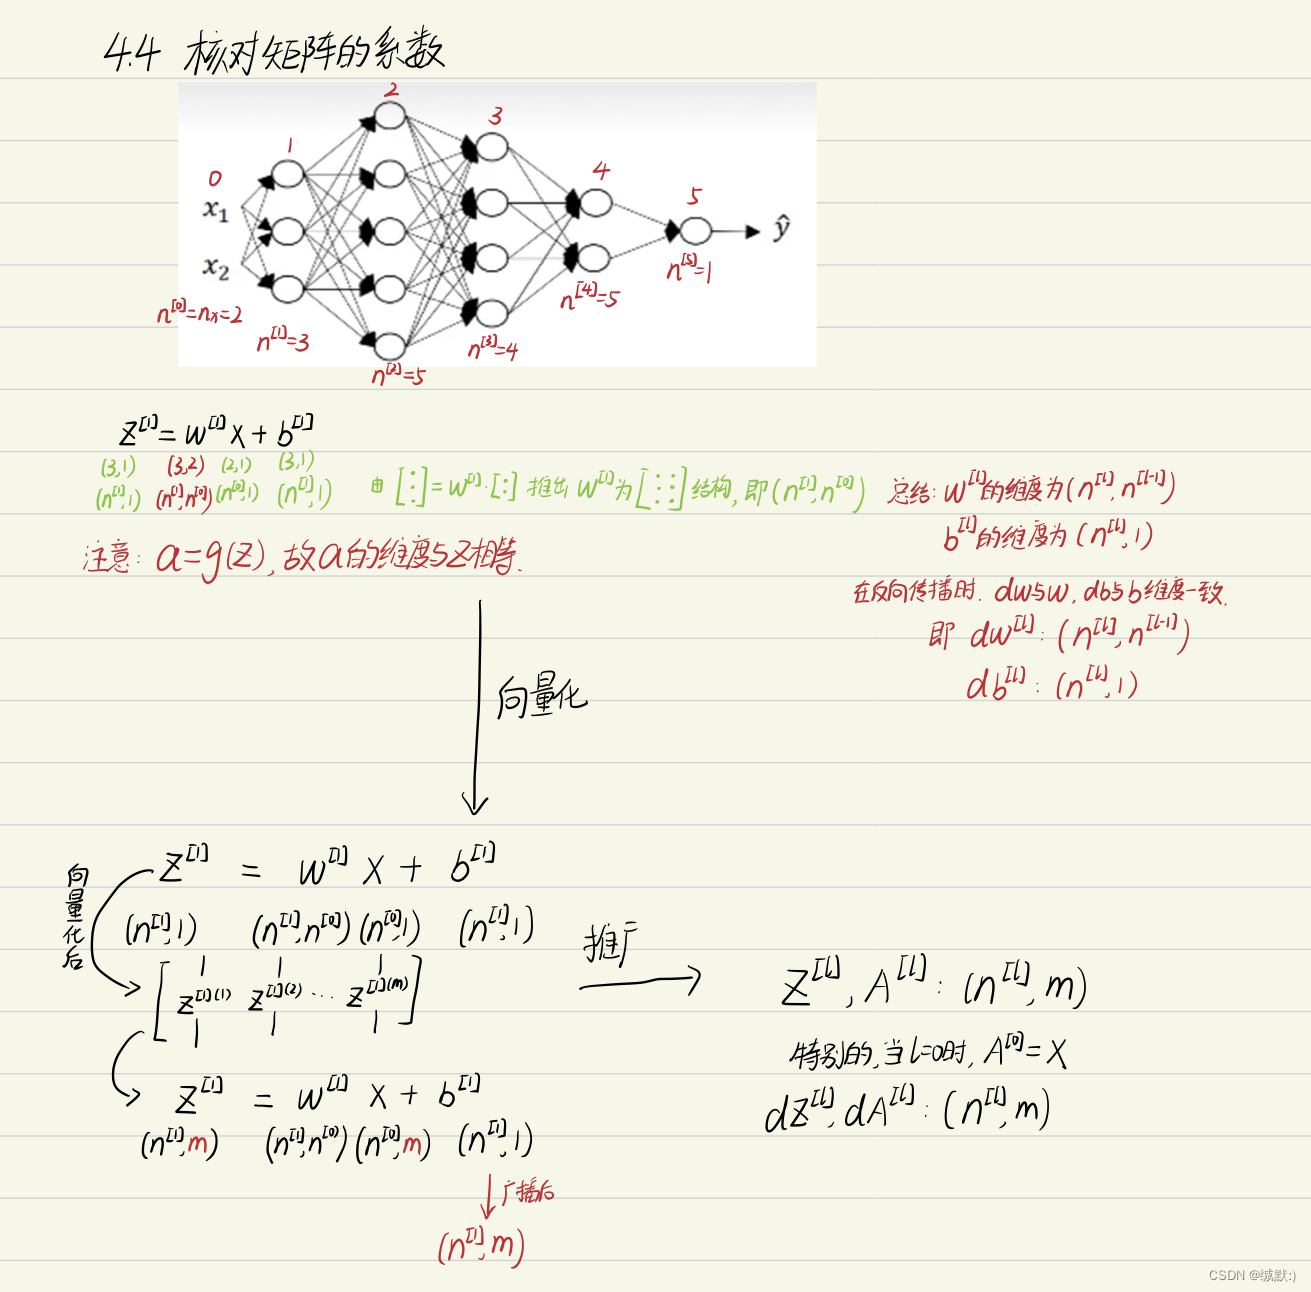 4.4 核对矩阵的系数
0 1 2 3 4 5
x₁
x₂
ŷ
n^[0]=nx=2
n^[1]=3
n^[2]=5
n^[3]=4
n^[4]=5
n^[5]=1
z^[1] = w^[1]x + b^[1]
(3,1) (3,2) (2,1) (3,1)
(n^[1],1) (n^[1],n^[0]) (n^[0],1) (n^[1],1)
由 [⋮] = w^[1]·[:] 推出 w^[1]为[⋮⋮]结构, 即(n^[1],n^[0])
注意: a=g(z), 故a的维度与z相等.
总结: w^[l]的维度为(n^[l],n^[l-1])
b^[l]的维度为(n^[l],1)
在反向传播时. dw与w, db与b维度一致.
即 dw^[l]: (n^[l],n^[l-1])
db^[l]: (n^[l],1)
向量化
z^[1] = w^[1] x + b^[1]
(n^[1],1) (n^[1],n^[0]) (n^[0],1) (n^[1],1)
向量化后
[z^[1](1) z^[1](2) ... z^[1](m)]
z^[1] = w^[1] x + b^[1]
(n^[1],m) (n^[1],n^[0]) (n^[0],m) (n^[1],1)
广播后
(n^[1],m)
推广
Z^[l], A^[l]: (n^[l],m)
特别的,当l=0时, A^[0]=X
dZ^[l], dA^[l]: (n^[l],m)
CSDN @缄默:)